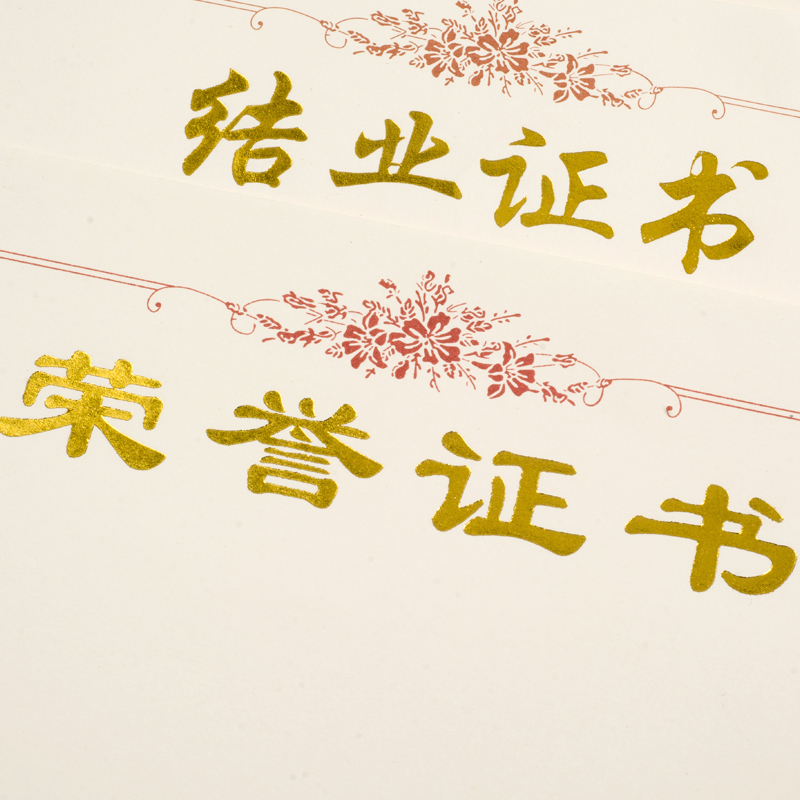 结业证书
荣誉证书